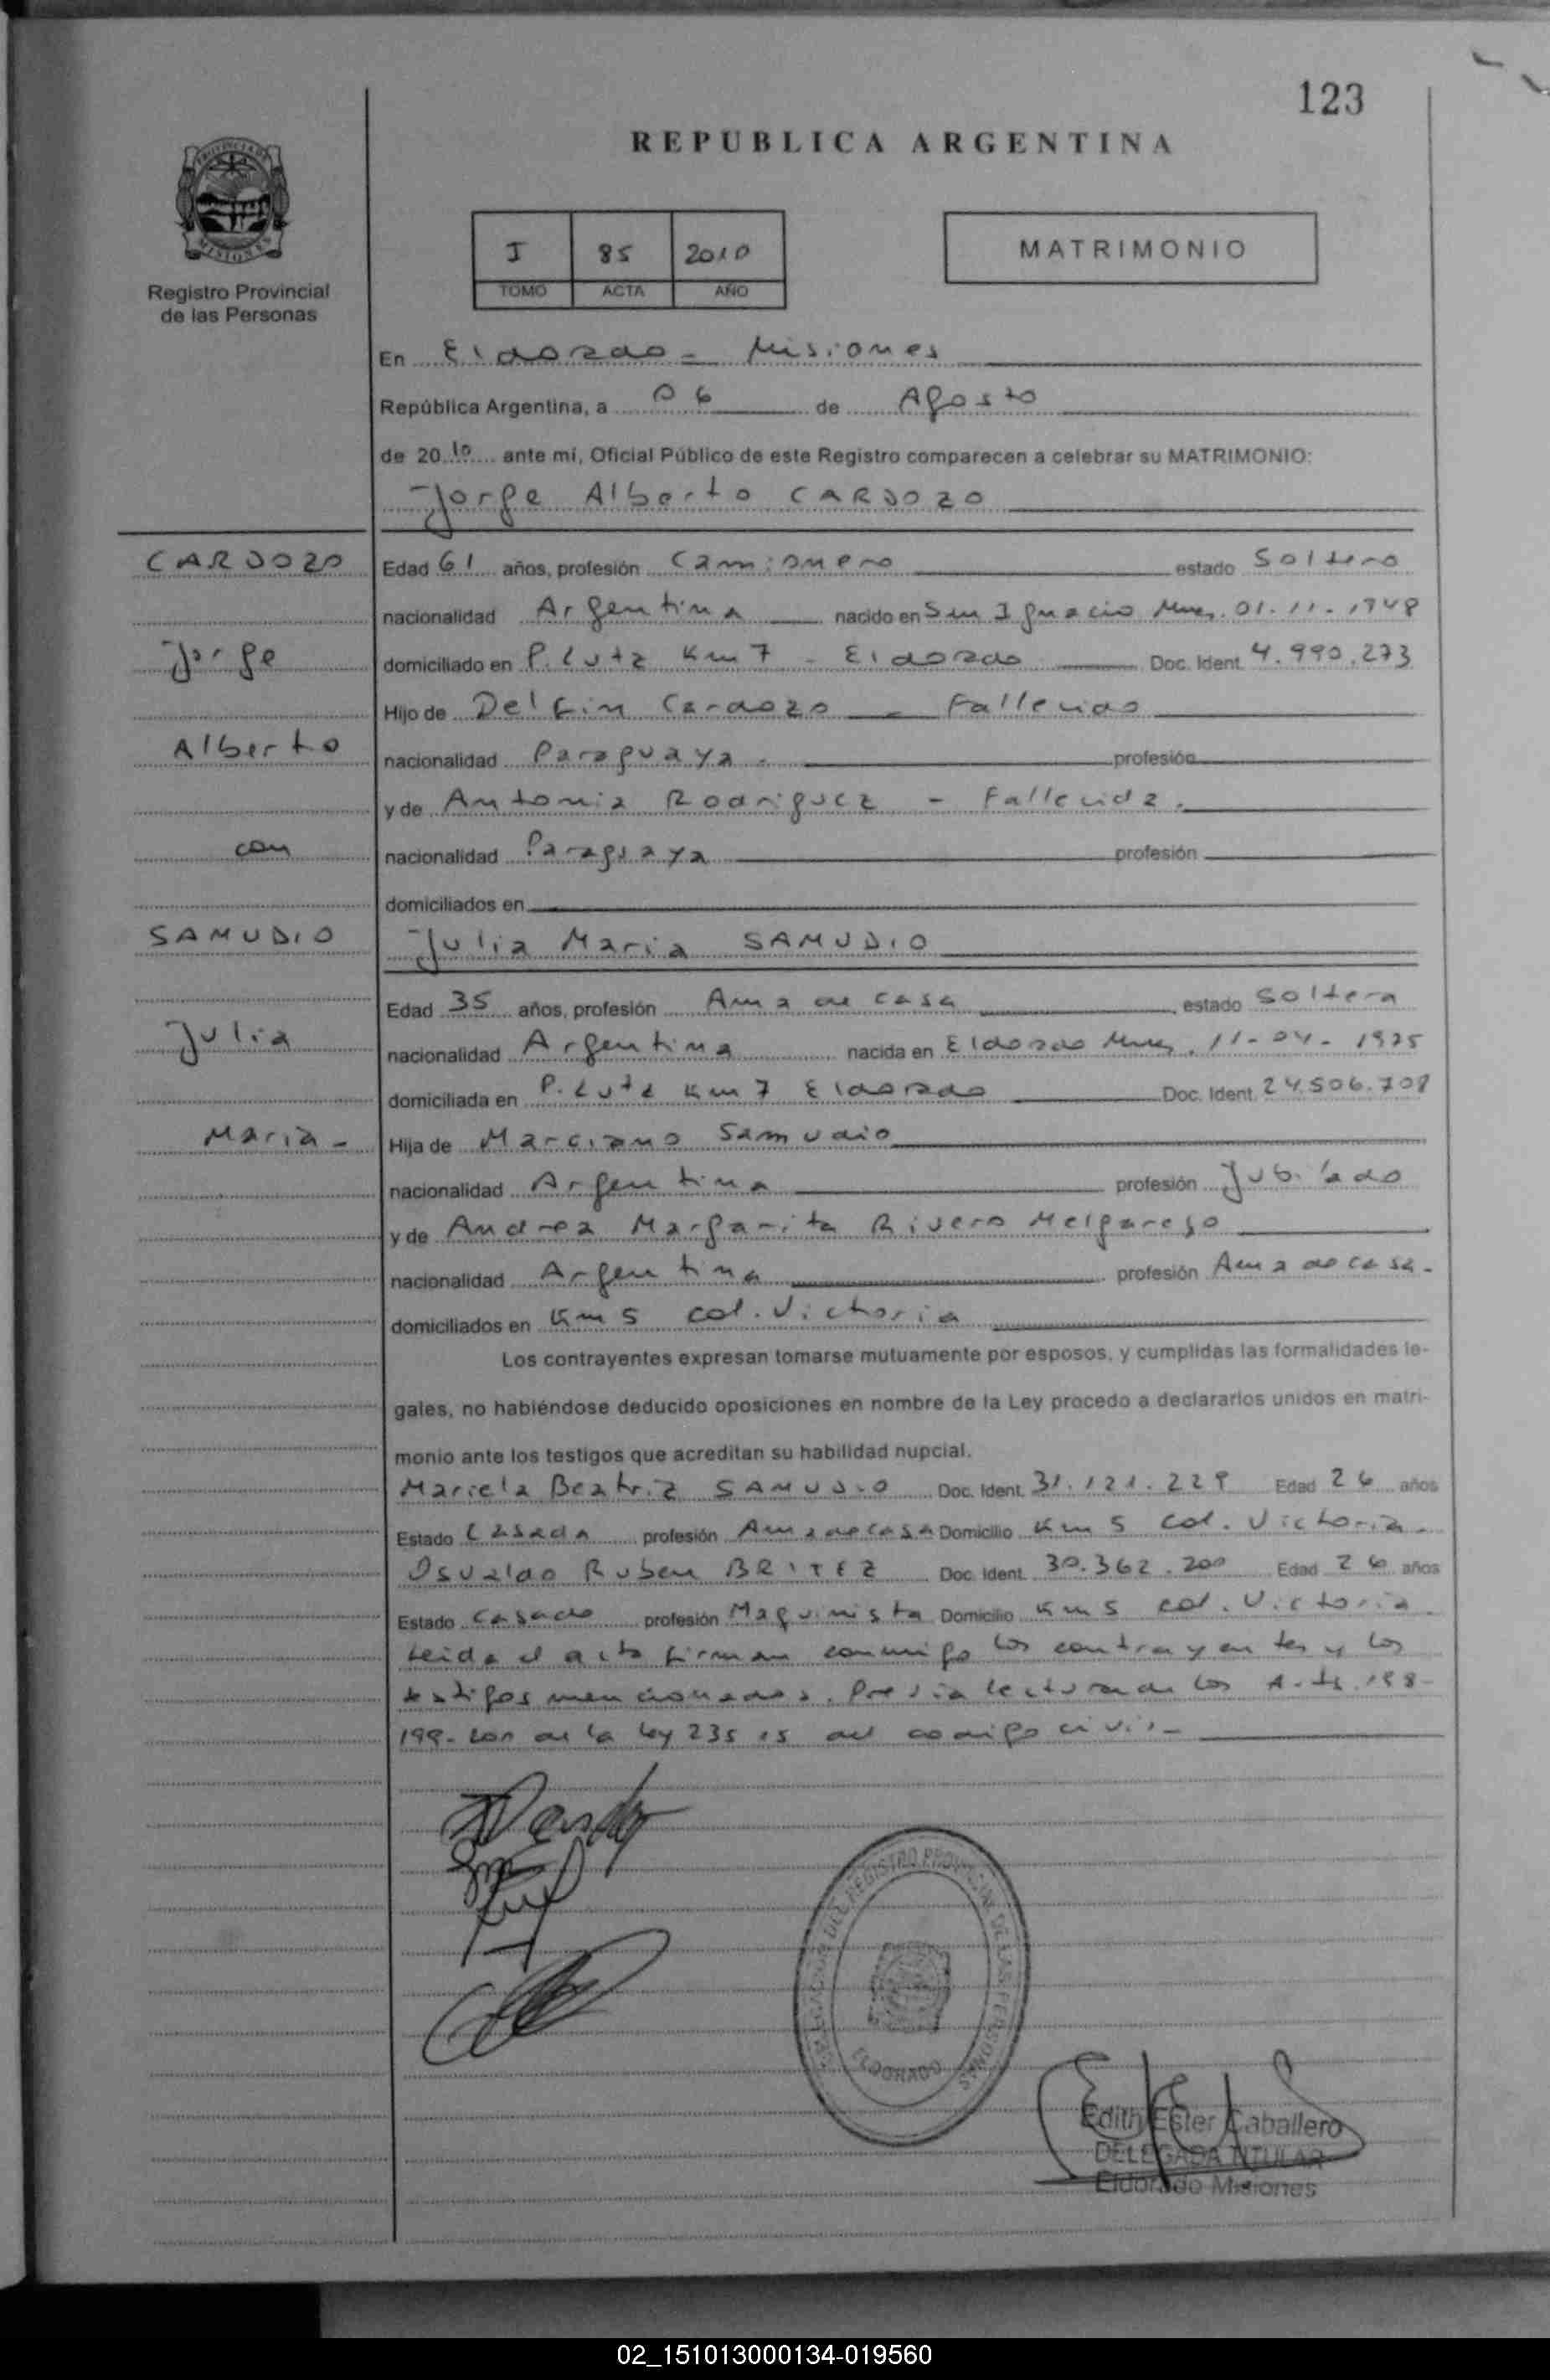 123
REPUBLICA ARGENTINA
PROVINCIA DE
MISIONES
Registro Provincial
de las Personas
I 85 2010
TOMO ACTA AÑO
MATRIMONIO
En Eldorado - Misiones
República Argentina, a 06 de Agosto
de 2010 ante mí, Oficial Público de este Registro comparecen a celebrar su MATRIMONIO:
Jorge Alberto CARDOZO
CARDOZO
Jorge
Alberto
con
SAMUDIO
Julia
Maria -
Edad 61 años, profesión Camionero estado Soltero
nacionalidad Argentina nacido en San Ignacio Mnes. 01.11.1948
domiciliado en P. Lutz Km 7 - Eldorado Doc. Ident. 4.990.273
Hijo de Delfin Cardozo - Fallecido
nacionalidad Paraguaya - profesión
y de Antonia Rodriguez - Fallecida.
nacionalidad Paraguaya profesión
domiciliados en
Julia Maria SAMUDIO
Edad 35 años, profesión Ama de casa estado Soltera
nacionalidad Argentina nacida en Eldorado Mnes. 11-04-1975
domiciliada en P. Lutz Km 7 Eldorado Doc. Ident. 24.506.708
Hija de Marciano Samudio
nacionalidad Argentina profesión Jubilado
y de Andrea Margarita Rivero Melgarejo
nacionalidad Argentina profesión Ama de casa -
domiciliados en Km 5 col. Victoria
Los contrayentes expresan tomarse mutuamente por esposos, y cumplidas las formalidades le-
gales, no habiéndose deducido oposiciones en nombre de la Ley procedo a declararlos unidos en matri-
monio ante los testigos que acreditan su habilidad nupcial.
Mariela Beatriz SAMUDIO Doc. Ident. 31.121.229 Edad 26 años
Estado Casada profesión Ama de casa Domicilio Km 5 col. Victoria -
Osvaldo Ruben BRITEZ Doc. Ident. 30.362.200 Edad 26 años
Estado Casado profesión Maquinista Domicilio Km 5 col. Victoria -
Leida el acta firman conmigo los contrayentes y los
testigos mencionados. Previa lectura de los Arts. 198-
199-200 de la Ley 23515 del codigo civil -
DEL REGISTRO PROVINCIAL DE LAS PERSONAS
ELDORADO
Edith Ester Caballero
DELEGADA TITULAR
Eldorado Misiones
02_151013000134-019560